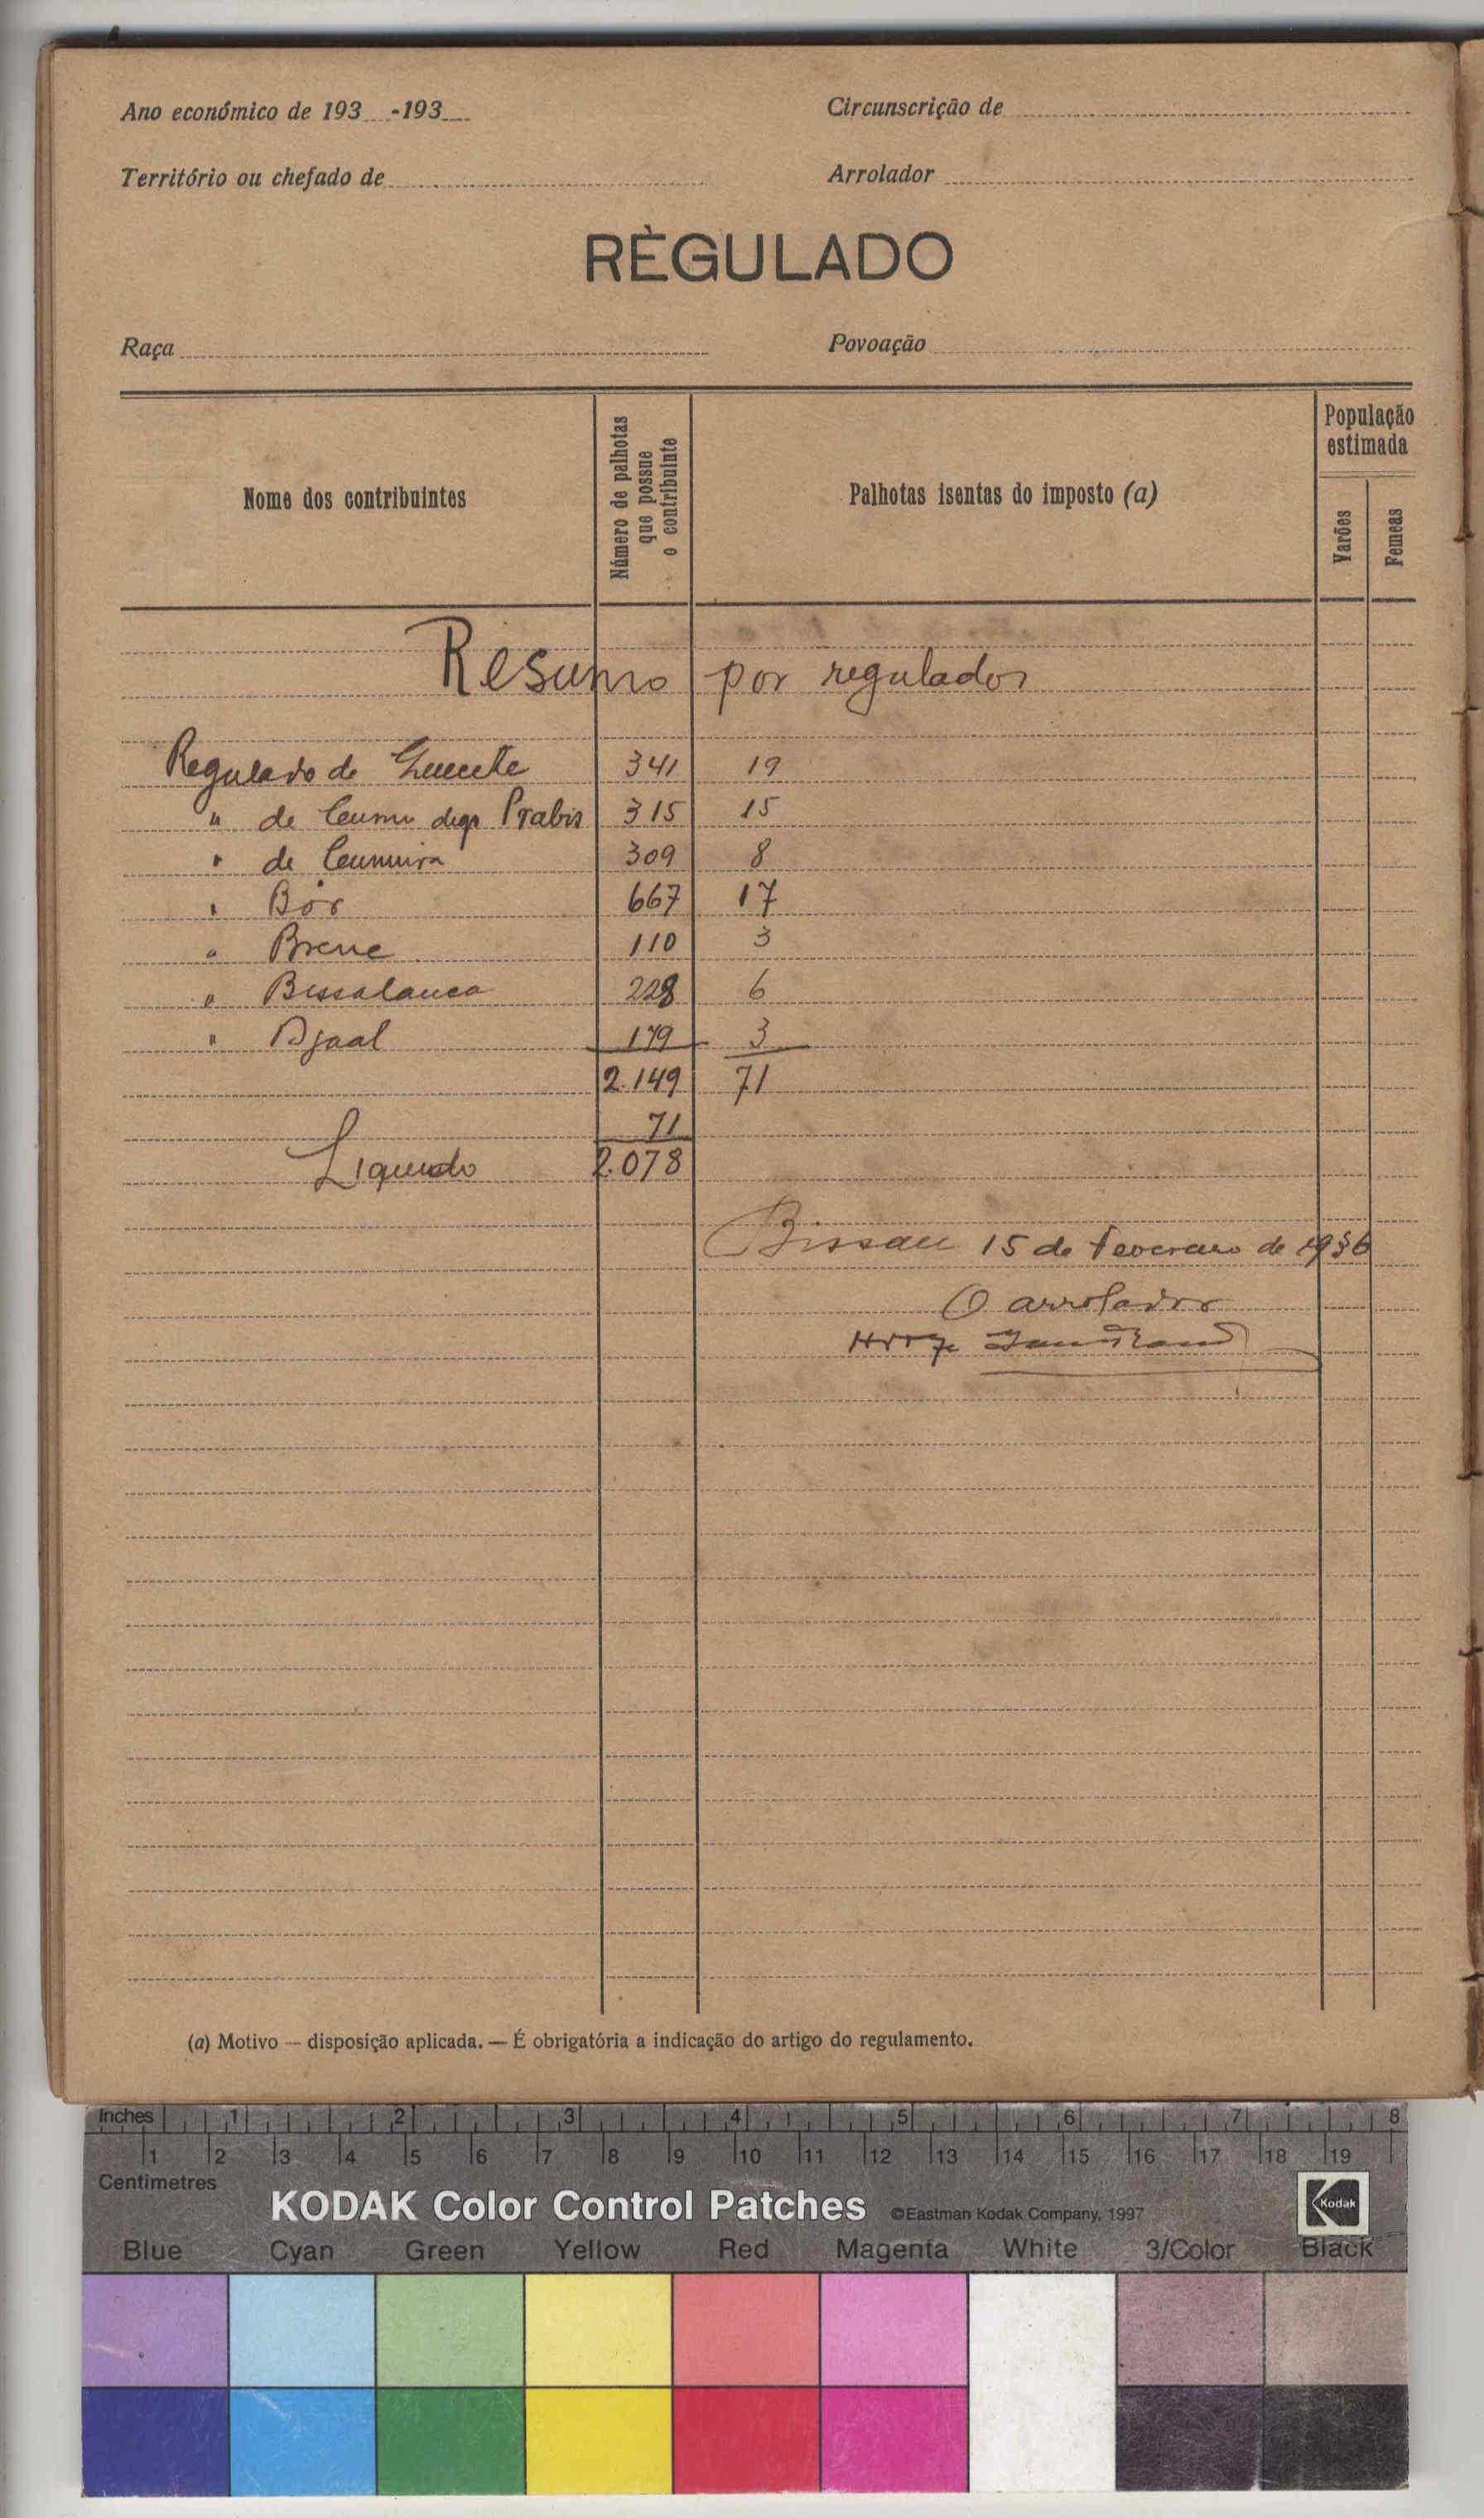 Ano económico de 193 -193
Circunscrição de
Território ou chefado de
Arrolador
RÈGULADO
Raça
Povoação
Nome dos contribuintes
Número de palhotas que possue o contribuinte
Palhotas isentas do imposto (a)
População estimada
Varões
Femeas
Resumo por regulados
Regulado de 341 19
" de Prabis 315 15
" de 309 8
" Bôr 667 17
" Brene 110 3
" Bissalanca 228 6
" Djaal 179 3
2.149 71
71
Liquido 2.078
Bissau 15 de fevereiro de 1936
O arrolador
(a) Motivo — disposição aplicada. — É obrigatória a indicação do artigo do regulamento.
Inches 1 2 3 4 5 6 7 8
1 2 3 4 5 6 7 8 9 10 11 12 13 14 15 16 17 18 19
Centimetres
KODAK Color Control Patches ©Eastman Kodak Company, 1997 Kodak
Blue Cyan Green Yellow Red Magenta White 3/Color Black